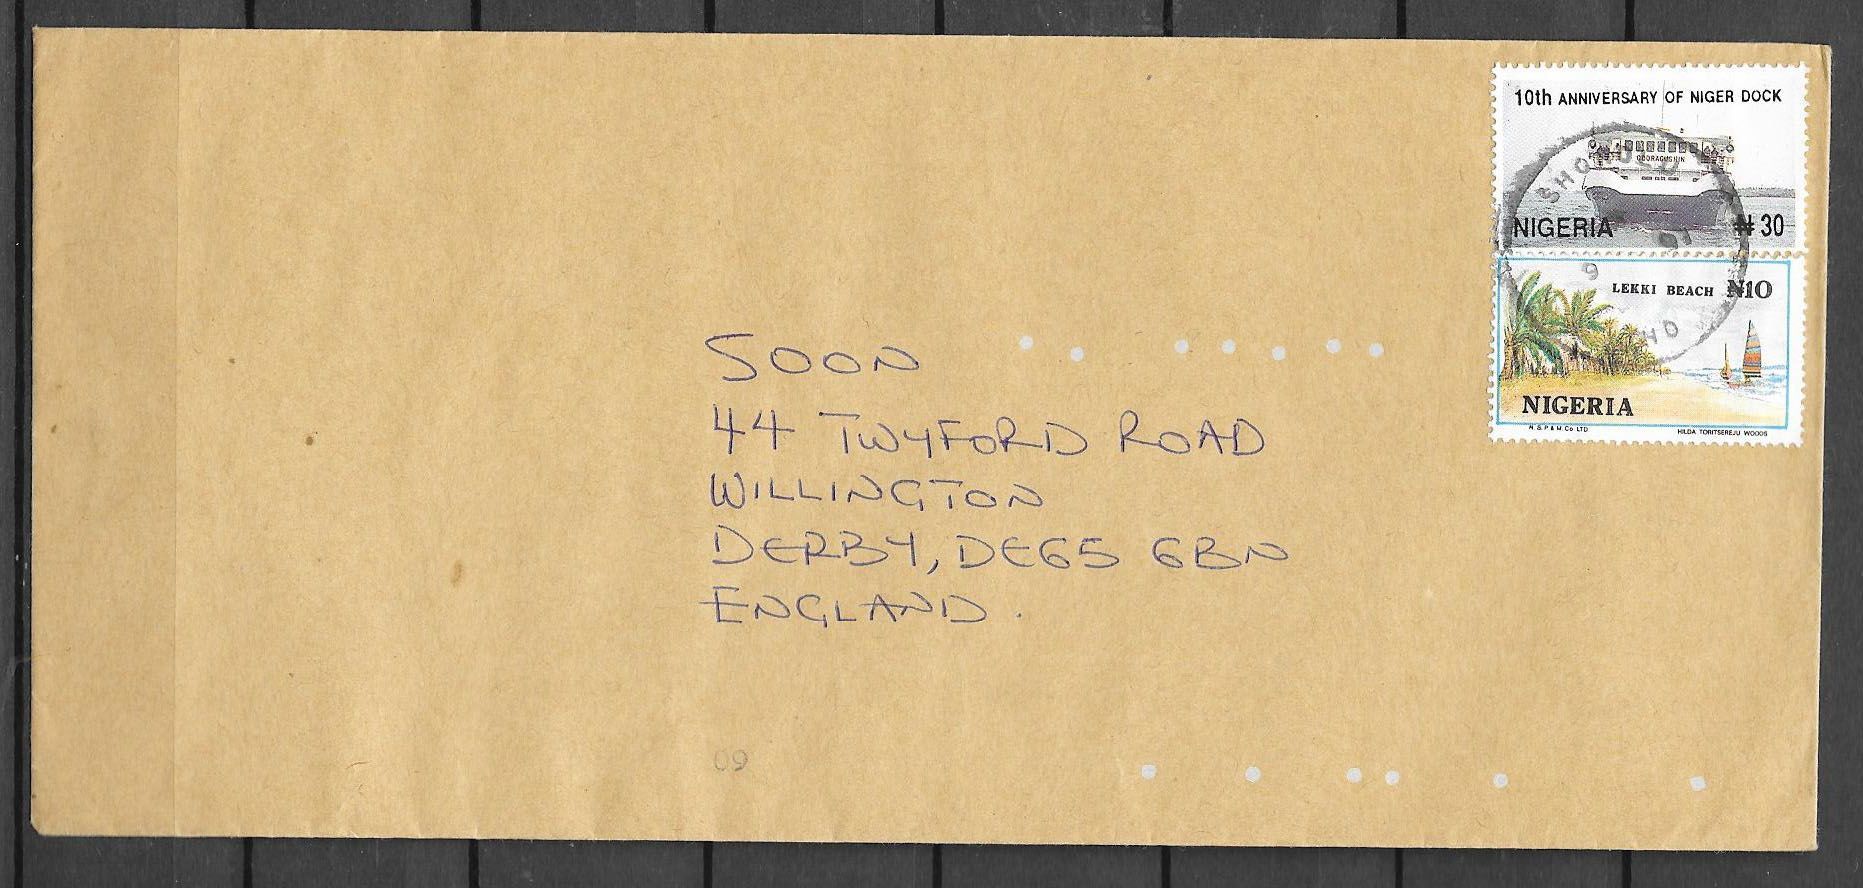 10th ANNIVERSARY OF NIGER DOCK
ODORAGUSHIN
NIGERIA
₦ 30
LEKKI BEACH ₦10
NIGERIA
N.S.P & M. Co. LTD
HILDA TORITSEREJU WOODS
SOON
44 TWYFORD ROAD
WILLINGTON
DERBY, DE65 6BN
ENGLAND.
09